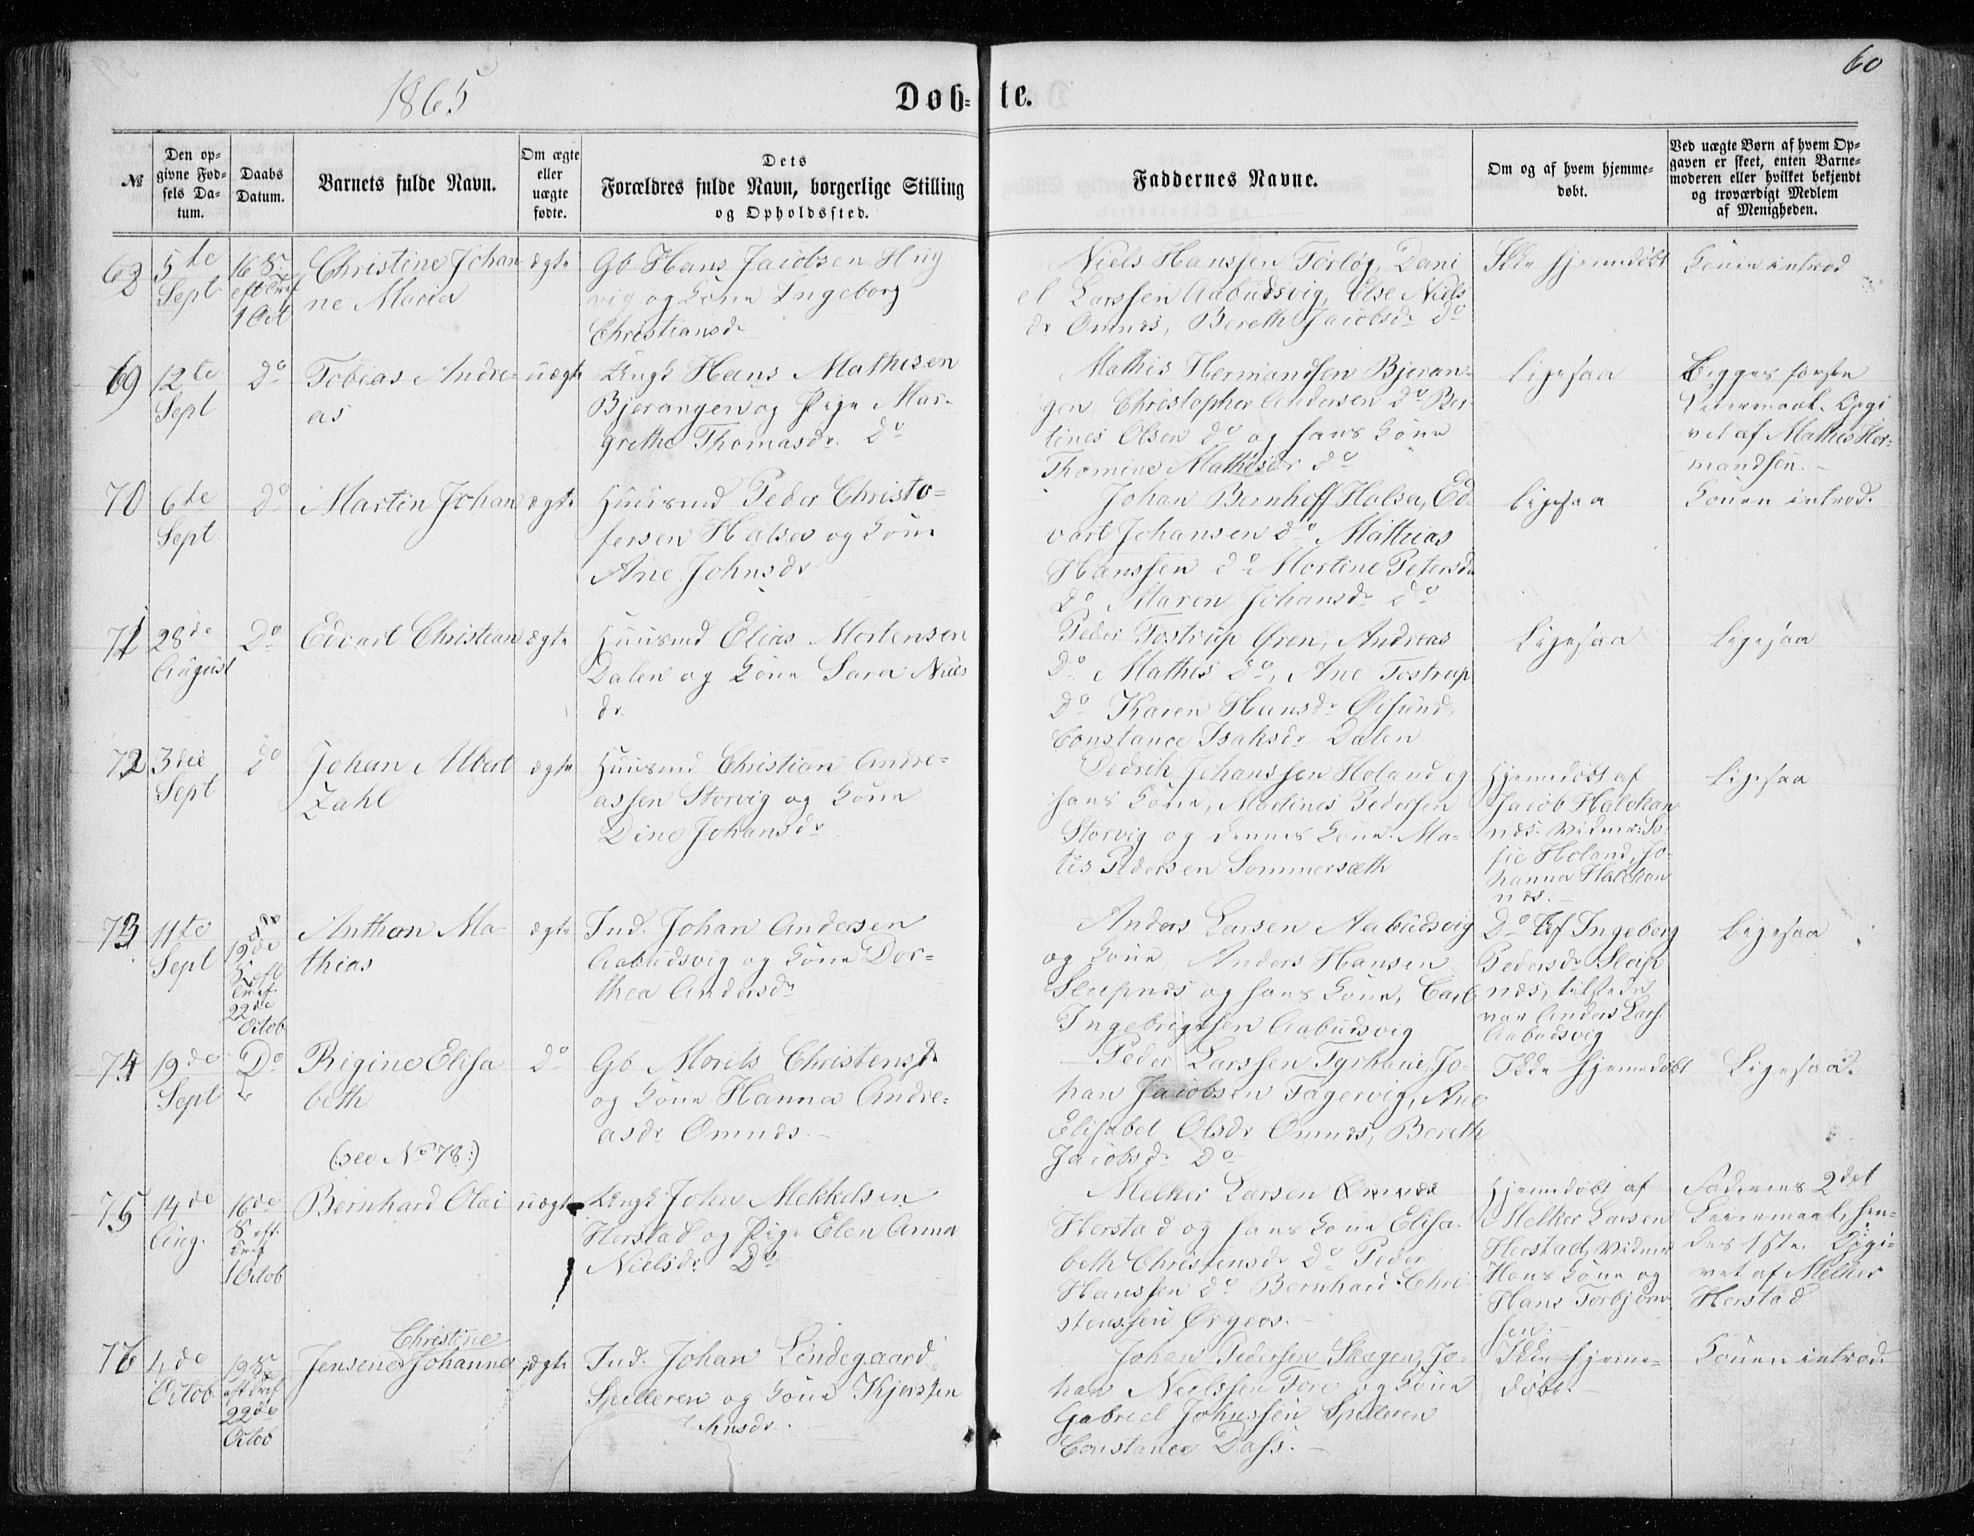 60
1865
Døb-te.
№
Den op-
givne Fød-
sels Da-
tum.
Daabs
Datum.
Barnets fulde Navn.
Om ægte
eller
uægte
fødte.
Dets
Forældres fulde Navn, borgerlige Stilling
og Opholdssted.
Faddernes Navne.
Om og af hvem hjemme-
døbt.
Ved uægte Børn af hvem Op-
gaven er skeet, enten Barne-
moderen eller hvilket bekjendt
og troværdigt Medlem
af Menigheden.
5te
Sept.
16 S
eft Tref
1 Oct
Christine Johan
ne Maria
ægte
Gb Hans Jacobsen
vig og Kone Ingeborg
Christiansdr
Niels Hanssen Dani
el Larssen Aabudsvig, Else Niels
dr Omnes, Bereth Jacobsdr do
Ikke hjemmedøbt
Konen introd
69
12te
Sept
Do
Tobias Andre-
as
uægte
Ungk Hans Mathisen
Bjerangen og Pige Mar-
grethe Thomasdr. Do
Mathis Hermandsen Bjeran-
gen, Christopher Andersen do Ber-
tines Olsen do og hans Kone
Thomine Mathisdr do
Ligesaa
Begges første
Leiermaal. Opgi
vet af Mathis Her-
mandsen.
70
6te
Sept.
do
Martin Johan
ægte
Huusmd Peder Christo-
fersen Halsa og Kone
Ane Johnsdr
Johan Bernhoff Halsa, Ed-
vart Johansen do Mathias
Hanssen do Martine Petersdr
Do Maren Johansdr Do
Ligesaa
Konen introd.
71
28de
August
Do
Edvart Christian
ægte
Huusmd Elias Mortensen
Dalen og Kone Sara Niels
dr.
Peder Tostrup Øren, Andreas
Do Mathis do, Ane Tostrup
Do Karen Hansdr Øisund,
Constance Isaksdr Dalen
Ligesaa
Ligesaa
72
3die
Sept
do
Johan Albert
Zahl
ægte
Huusmd Christian Andre-
assen Storvig og Kone
Dine Johansdr
Dedrik Johanssen Holand og
hans Kone, Martines Pedersen
Storvig og dennes Kone Ma-
tis Pedersen Sommersæth
Hjemmedøbt af
Jacob Halchan
næs. Vidner: So-
fie Holand, Jo-
hanna Halchan
næs.
Ligesaa
73
11te
Sept
19de
S. eft
Tref.
22de
Octob
Anthon Ma-
thias
ægte
Ind. Johan Andersen
Aabudsvig og Kone Dor-
thea Andersdr
Anders Larsen Aabudsvig
og Kone, Anders Hansen
Sleipnæs og hans Kone, Carl
Ingebrigtsen Aabudsvig
Do Af Ingeborg
Pedersdr Sleip
næs, tilstede
var Anders Lars
Aabudsvig
Ligesaa
74
19de
Sept
Do
Regine Elisa
beth
(:see No 78:)
do
Gb Morits Christensen
og Kone Hanna Andre-
asdr Omnes.
Peder Larssen Tyrhaue, Jo-
han Jacobsen Fagervig, Ane
Elisabet Olsdr Omnes, Bereth
Jacobsdr Do
Ikke hjemmedøbt
Ligesaa.
75
14de
Aug.
16de
S. eft.
Tref
1 Octob
Bernhard Olai
uægte
Ungk John Mekkelsen
Herstad og Pige Elen Anna
Nielsdr Do
Melker Larsen
Herstad og hans Kone Elisa-
beth Christensdr do Peder
Hanssen do Bernhard Chri-
stenssen Ørgens.
Hjemmedøbt af
Melker Larsen
Herstad, Vidner
Hans Kone og
Hans Torbjørn
sen.
Faderens 2det
Leiermaal, hen-
des 1ste. Opgi-
vet af Melker
Herstad
76
4de
Octob
19 S
eft Tref
22de
Octob
Christine
Jensine Johanne
ægte
Ind. Johan Lindegaard
Spilleren og Kone Kjersten
Johan Pedersen Skagen, Jo-
han Nielssen Fore og Kone
Gabriel Johnssen Spilleren
Constance Dass.
Ikke hjemme-
døbt.
Konen introd.